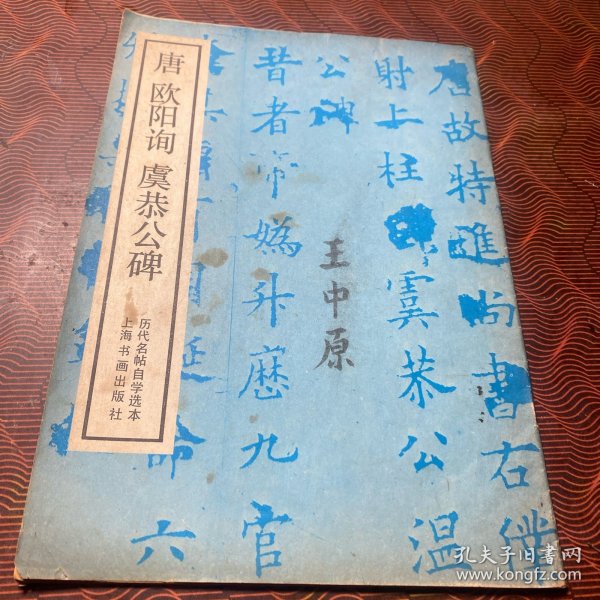 唐 欧阳询 虞恭公碑
历代名帖自学选本
上海书画出版社
唐故特进尚書右僕
射上柱 虞恭公温
公碑
昔者帝媯升歷九官
命六
王中原
孔夫子旧书网
www.kongfz.com